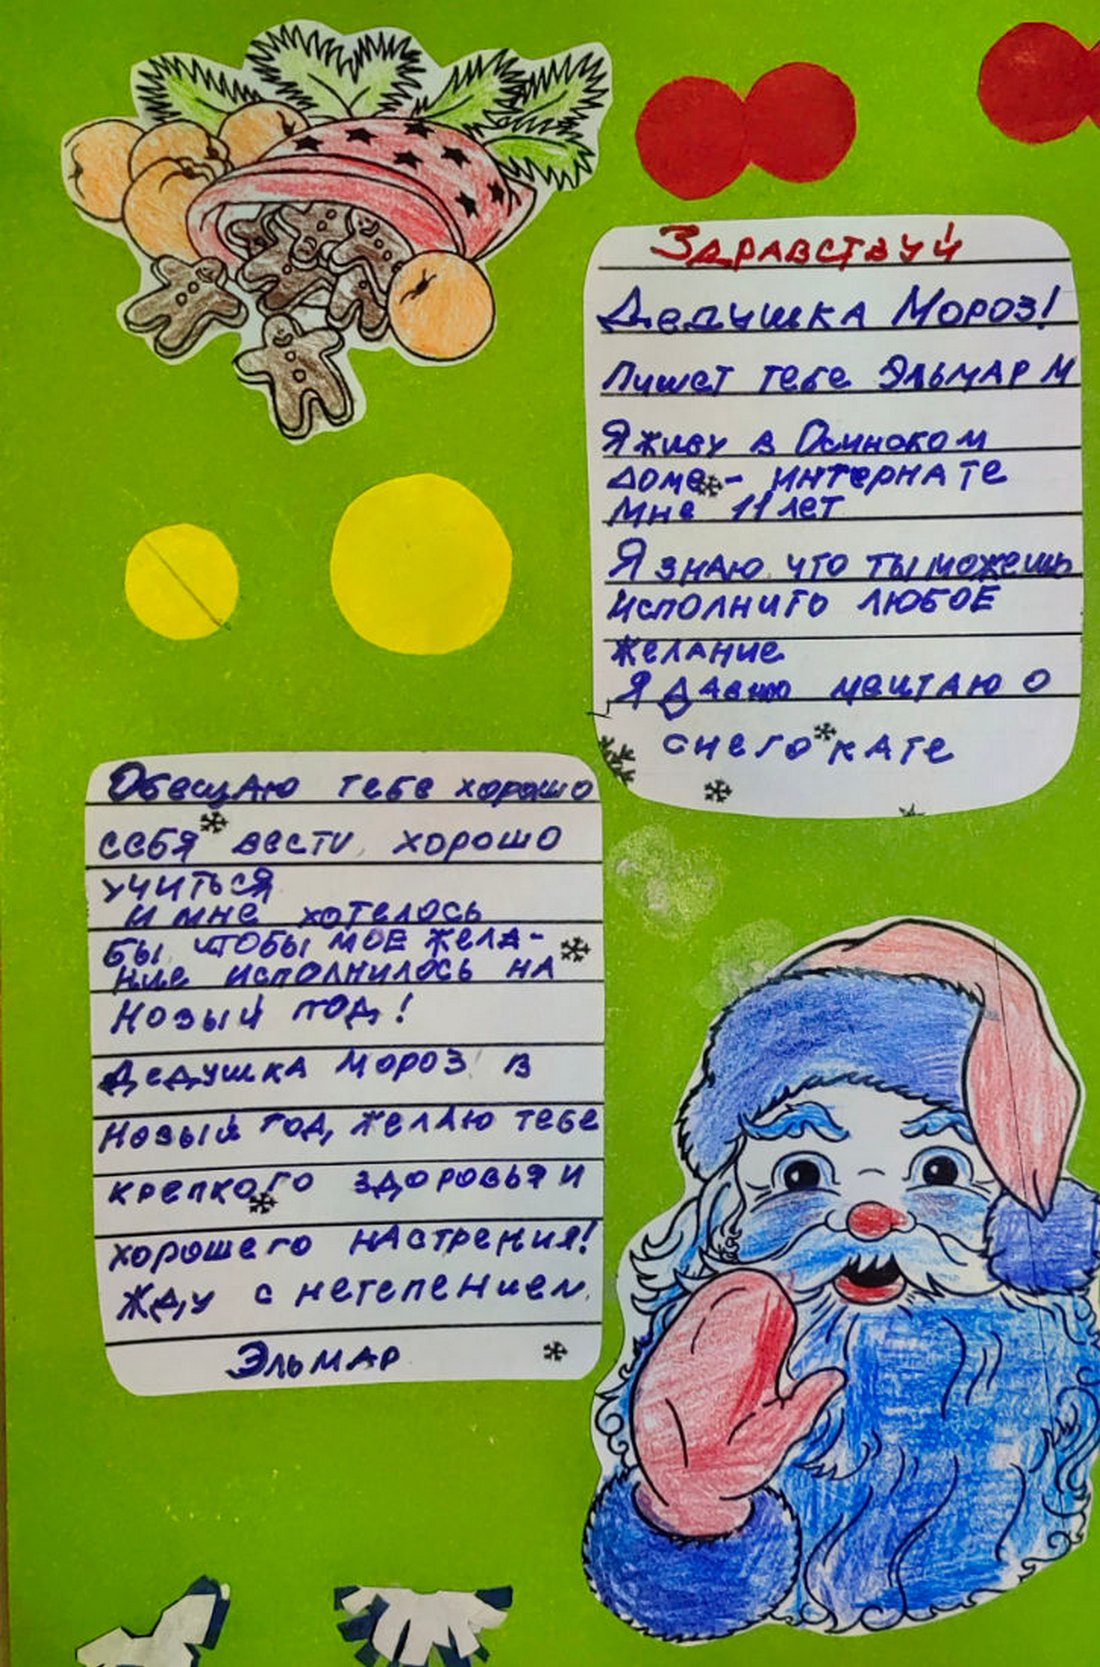 Здравствуй
Дедушка Мороз!
Пишет тебе Эльмар М
Я живу в Осинском
доме - интернате
мне 11 лет
Я знаю что ты можешь
исполнить любое
желание
Я давно мечтаю о
снегокате
Обещаю тебе хорошо
себя вести, хорошо
учиться
и мне хотелось
бы чтобы мое жела-
ние исполнилось на
Новый год!
Дедушка мороз в
Новый год, желаю тебе
крепкого здоровья и
хорошего настрения!
Жду с нетепением.
Эльмар